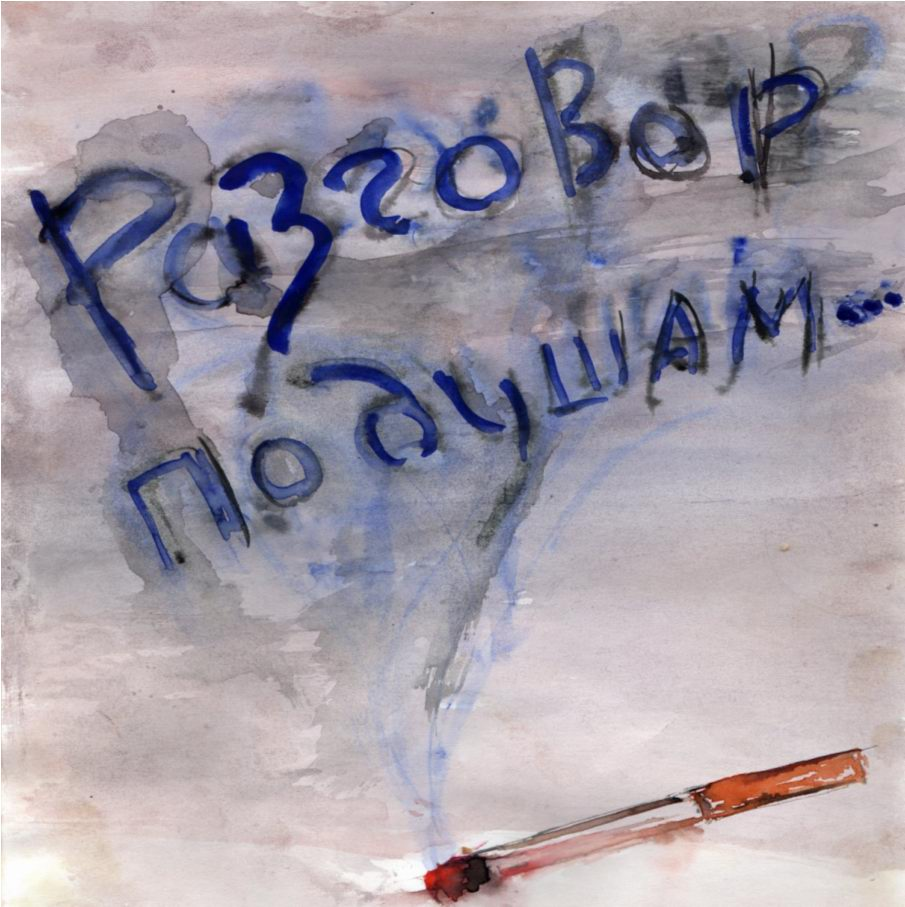 Разговор
по душам...